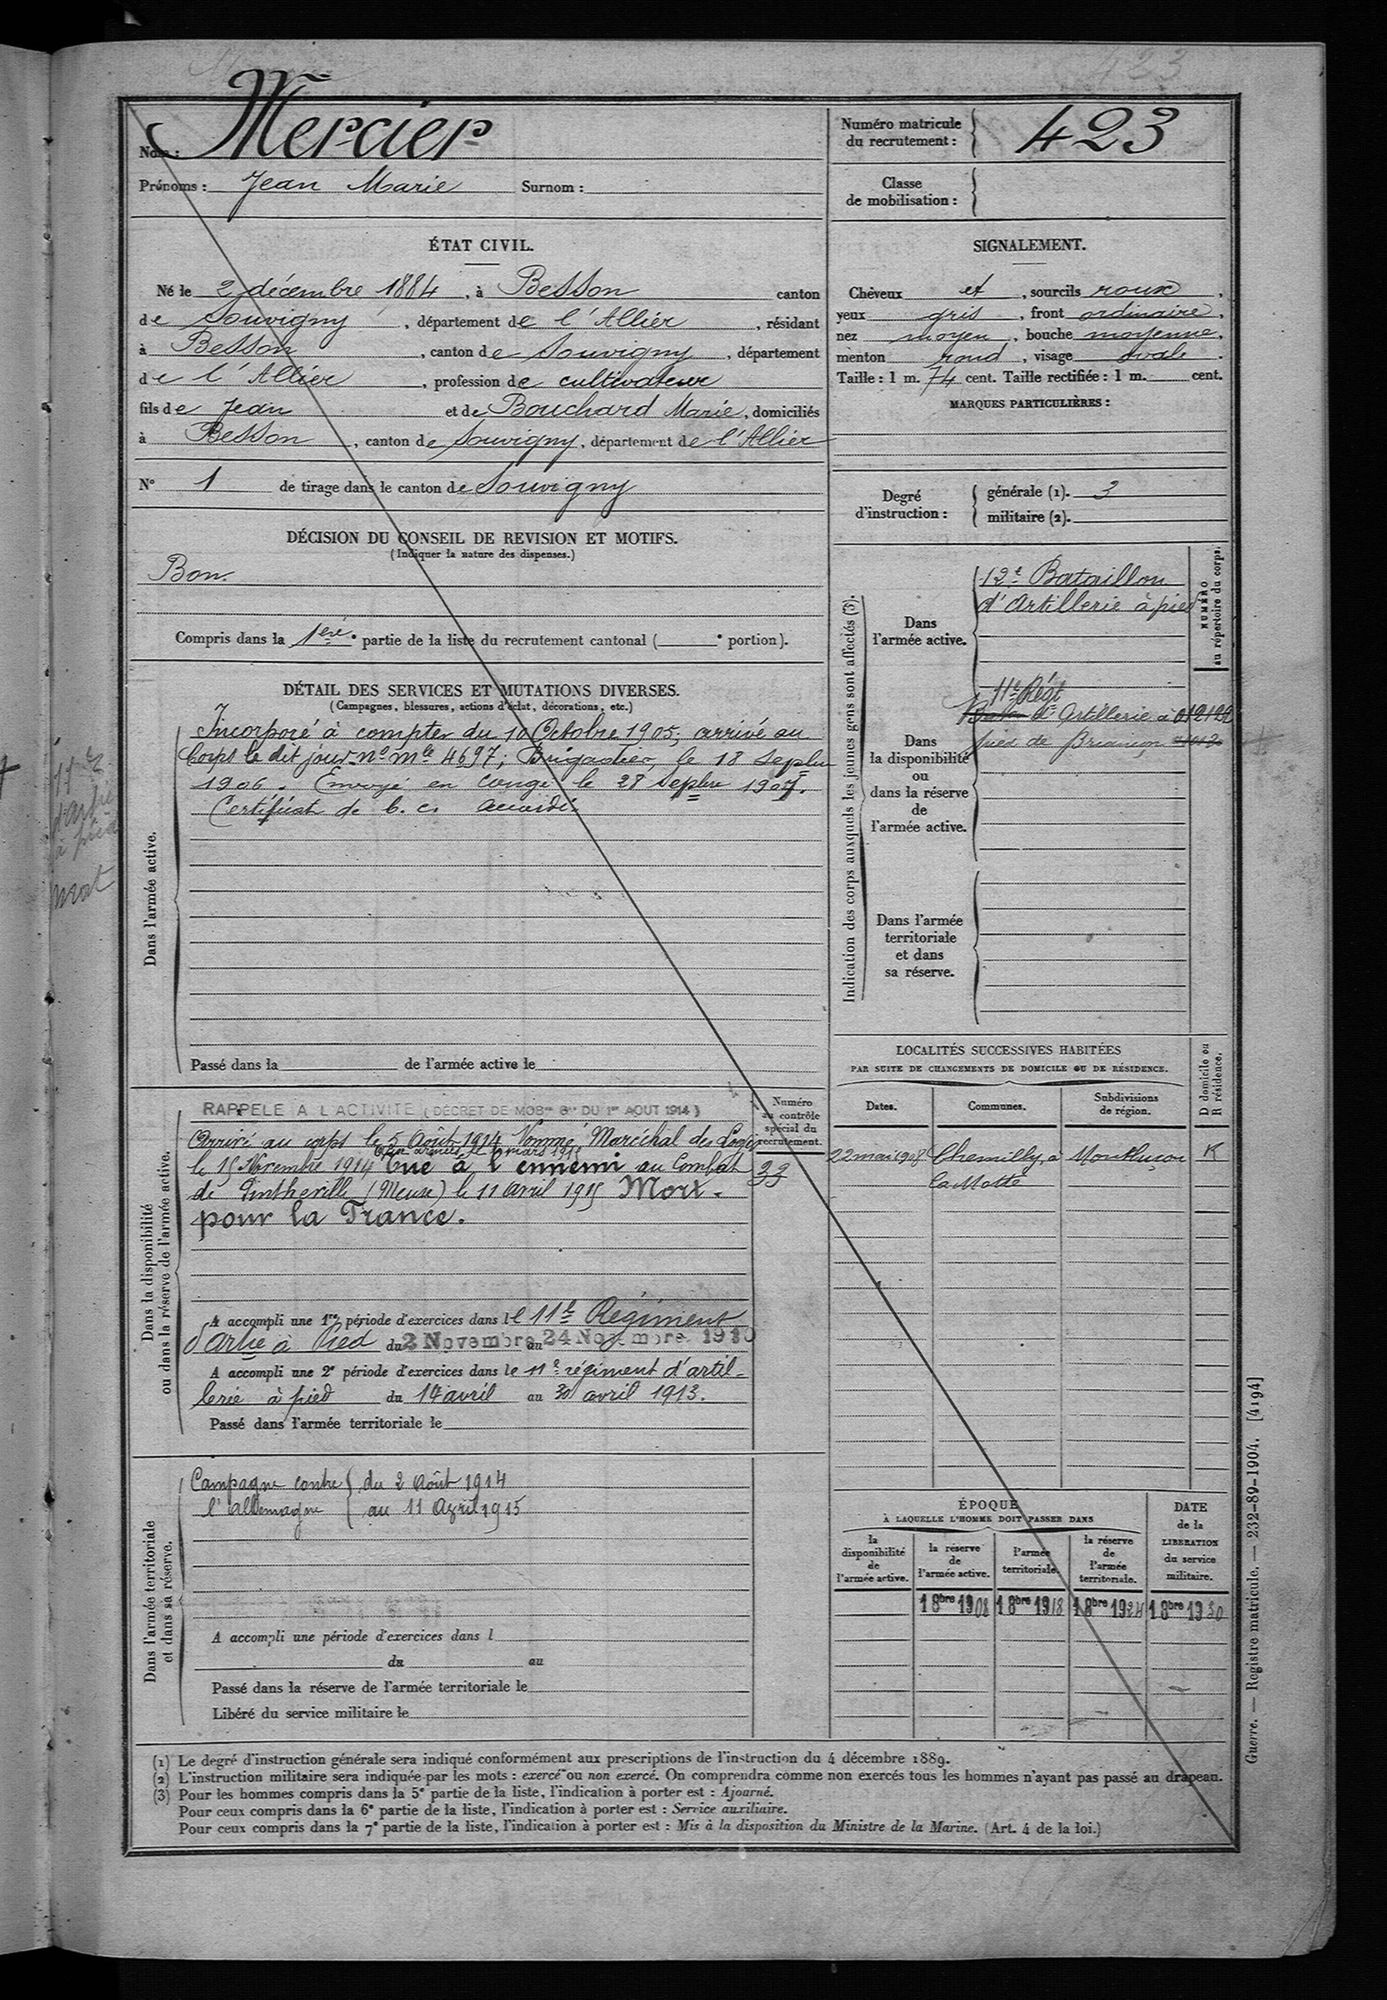 423
Nom : Mercier
Prénoms : Jean Marie Surnom :
Numéro matricule du recrutement : 423
Classe de mobilisation :
ÉTAT CIVIL.
Né le 2 décembre 1884, à Besson canton
de Souvigny, département de l'Allier, résidant
à Besson, canton de Souvigny, département
de l'Allier, profession de cultivateur
fils de Jean et de Bouchard Marie, domiciliés
à Besson, canton de Souvigny, département de l'Allier
N° 1 de tirage dans le canton de Souvigny
SIGNALEMENT.
Cheveux et, sourcils roux,
yeux gris, front ordinaire,
nez moyen, bouche moyenne,
menton rond, visage ovale.
Taille : 1 m. 74 cent. Taille rectifiée : 1 m. cent.
MARQUES PARTICULIÈRES :
Degré d'instruction : générale (1). 3
militaire (2).
DÉCISION DU CONSEIL DE REVISION ET MOTIFS.
(Indiquer la nature des dispenses.)
Bon.
Compris dans la 1ère partie de la liste du recrutement cantonal ( ° portion).
DÉTAIL DES SERVICES ET MUTATIONS DIVERSES.
(Campagnes, blessures, actions d'éclat, décorations, etc.)
Dans l'armée active.
Incorporé à compter du 10 Octobre 1905, arrivé au
Corps le dit jour, n° mle 4697; Brigadier le 18 Septbre
1906. Envoyé en congé le 28 septbre 1907.
Certificat de b. c. accordé.
Passé dans la de l'armée active le
Indication des corps auxquels les jeunes gens sont affectés (3).
NUMÉRO au répertoire du corps.
Dans l'armée active.
12e Bataillon
d'Artillerie à pied
Dans la disponibilité ou dans la réserve de l'armée active.
11e Régt
d'Artillerie à
pied de Briançon
Dans l'armée territoriale et dans sa réserve.
11e
d'artie
à pied
mort
LOCALITÉS SUCCESSIVES HABITÉES
PAR SUITE DE CHANGEMENTS DE DOMICILE OU DE RÉSIDENCE.
D domicile ou R résidence.
Dates. Communes. Subdivisions de région.
22 mai 1908 Chemilly, à Montluçon R
la Motte
Dans la disponibilité ou dans la réserve de l'armée active.
Numéro au contrôle spécial du recrutement.
33
RAPPELÉ A L'ACTIVITÉ (DÉCRET DE MOBon Gle DU 1er AOUT 1914)
Arrivé au corps le 5 Août 1914 Nommé Maréchal des Logis
le 15 Novembre 1914 Tué à l'ennemi au Combat
de Gintheville (Meuse) le 11 Avril 1915 Mort
pour la France.
A accompli une 1re période d'exercices dans le 11e Régiment
d'Artie à Pied du 2 Novembre au 24 Novembre 1910
A accompli une 2e période d'exercices dans le 11e régiment d'artil-
lerie à pied du 14 avril au 30 avril 1913.
Passé dans l'armée territoriale le
Dans l'armée territoriale et dans sa réserve.
Campagne contre du 2 Août 1914
l'Allemagne au 11 Avril 1915
A accompli une période d'exercices dans l
du au
Passé dans la réserve de l'armée territoriale le
Libéré du service militaire le
ÉPOQUE
À LAQUELLE L'HOMME DOIT PASSER DANS
DATE de la LIBÉRATION du service militaire.
la disponibilité de l'armée active.
la réserve de l'armée active.
l'armée territoriale.
la réserve de l'armée territoriale.
1 8bre 1908 1 8bre 1918 1 8bre 1924 1 8bre 1930
(1) Le degré d'instruction générale sera indiqué conformément aux prescriptions de l'instruction du 4 décembre 1889.
(2) L'instruction militaire sera indiquée par les mots : exercé ou non exercé. On comprendra comme non exercés tous les hommes n'ayant pas passé au drapeau.
(3) Pour les hommes compris dans la 5e partie de la liste, l'indication à porter est : Ajourné.
Pour ceux compris dans la 6e partie de la liste, l'indication à porter est : Service auxiliaire.
Pour ceux compris dans la 7e partie de la liste, l'indication à porter est : Mis à la disposition du Ministre de la Marine. (Art. 4 de la loi.)
Guerre. — Registre matricule. — 232-89-1904. [4194]